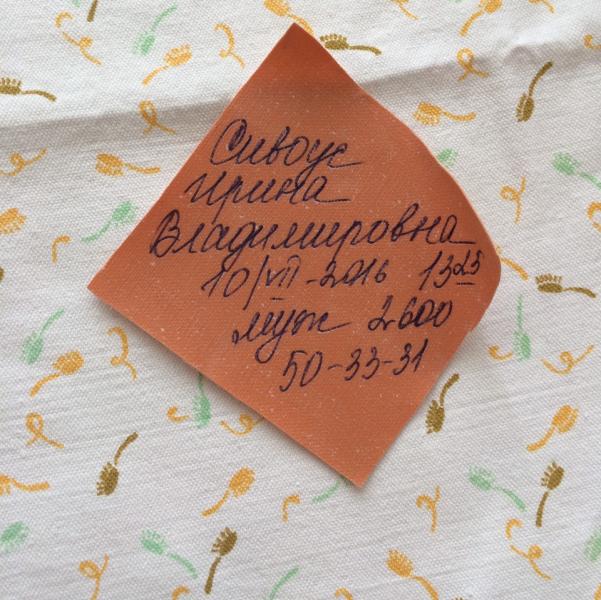 Сивоус
Ирина
Владимировна
10/VII-2016 13 25
муж 2600
50-33-31